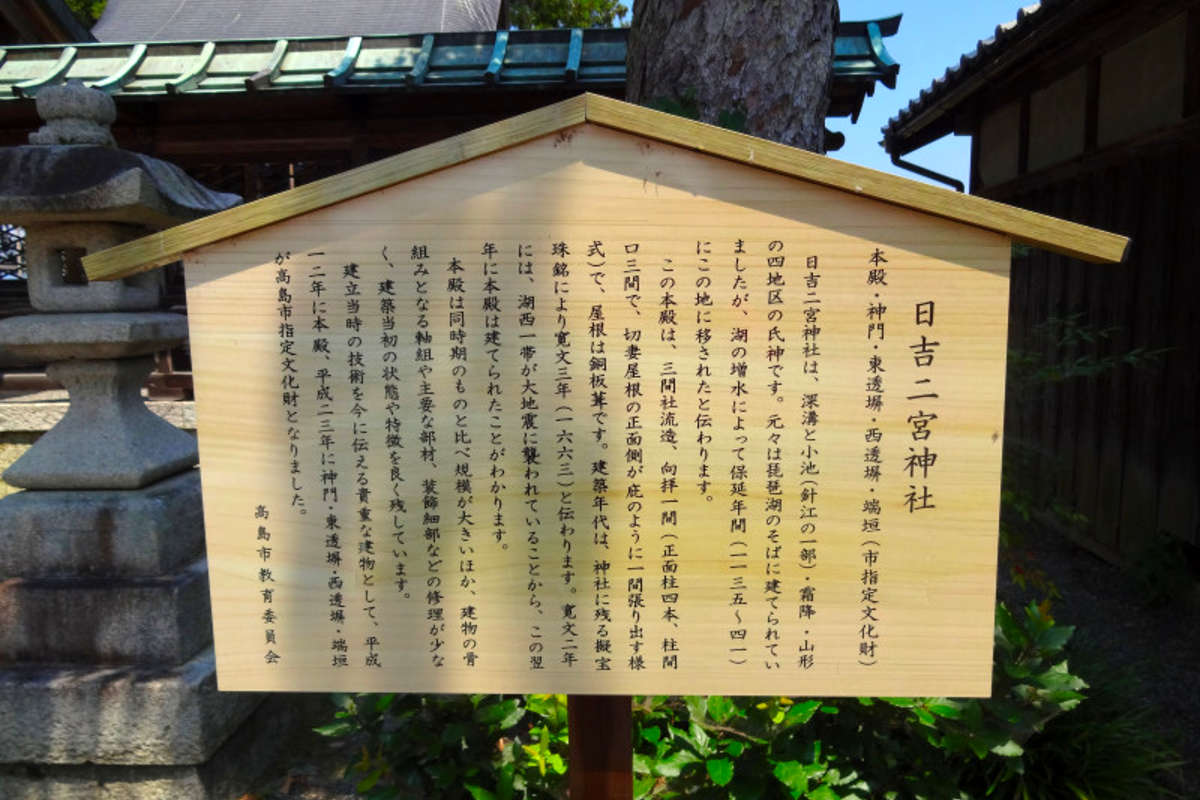 日吉二宮神社
本殿・神門・東透塀・西透塀・端垣(市指定文化財)
日吉二宮神社は、深溝と小池(針江の一部)・霜降・山形
の四地区の氏神です。元々は琵琶湖のそばに建てられてい
ましたが、湖の増水によって保延年間(一一三五〜四一)
にこの地に移されたと伝わります。
この本殿は、三間社流造、向拝一間(正面柱四本、柱間
口三間で、切妻屋根の正面側が庇のように一間張り出す様
式)で、屋根は銅板葺です。建築年代は、神社に残る擬宝
珠銘により寛文三年(一六六三)と伝わります。寛文二年
には、湖西一帯が大地震に襲われていることから、この翌
年に本殿は建てられたことがわかります。
本殿は同時期のものと比べ規模が大きいほか、建物の骨
組みとなる軸組や主要な部材、装飾細部などの修理が少な
く、建築当初の状態や特徴を良く残しています。
建立当時の技術を今に伝える貴重な建物として、平成
一二年に本殿、平成二三年に神門・東透塀・西透塀・端垣
が高島市指定文化財となりました。
高島市教育委員会